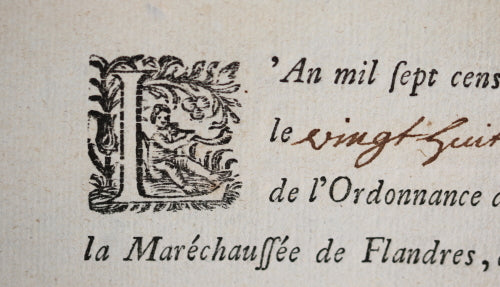 L'An mil ſept cens
le vingt huit
de l'Ordonnance d
la Maréchauſſée de Flandres,